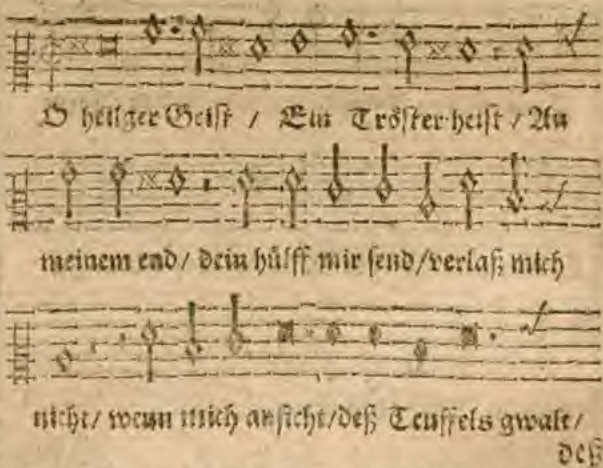 O heilger Geist / Ein Tröster heist / An
meinem end / dein hülff mir send / verlaß mich
nicht / wenn mich anficht / deß Teuffels gwalt /
deß